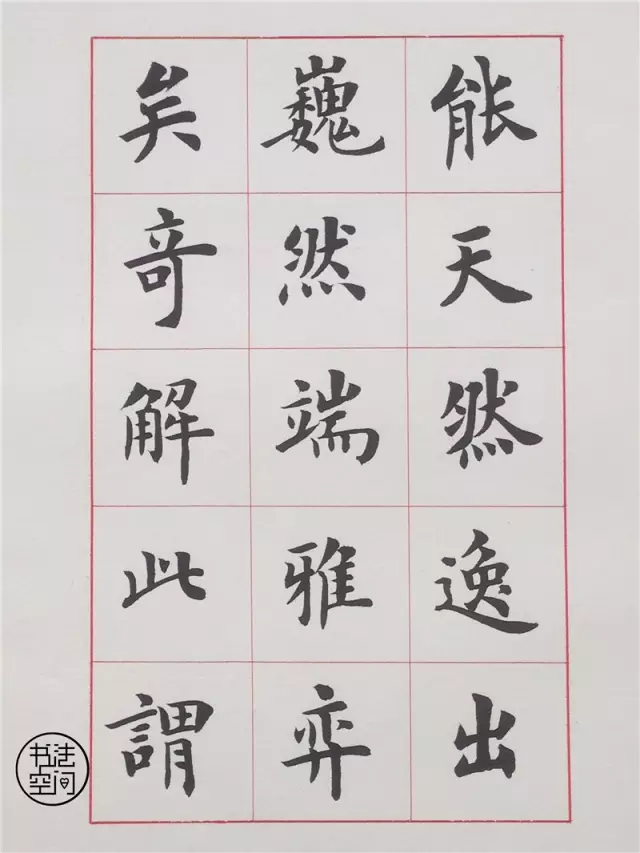 能天然逸出
巍然端雅弈
矣竒解此謂
书法
空间